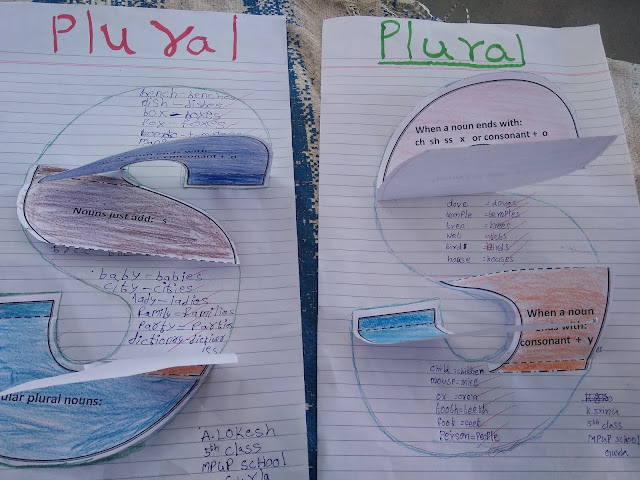 Plural
bench - benches
dish - dishes
box - boxes
fox - foxes
consonant + o
Nouns just add: s
baby = babies
city - cities
lady - ladies
family = families
party = partie
ies
ular plural nouns:
A. Lokesh
5th class
MPUP SCHOOL
Gurla
Plural
When a noun ends with:
ch sh ss x or consonant + o
dove = doves
temple = temples
tree = trees
web = webs
birds = birds
house = houses
When a noun
ends with:
consonant + y
child = children
mouse = mice
ox = oxen
tooth = teeth
foot = feet
person = people
K Srinu
5th class
MPUP SCHOOL
Gurla